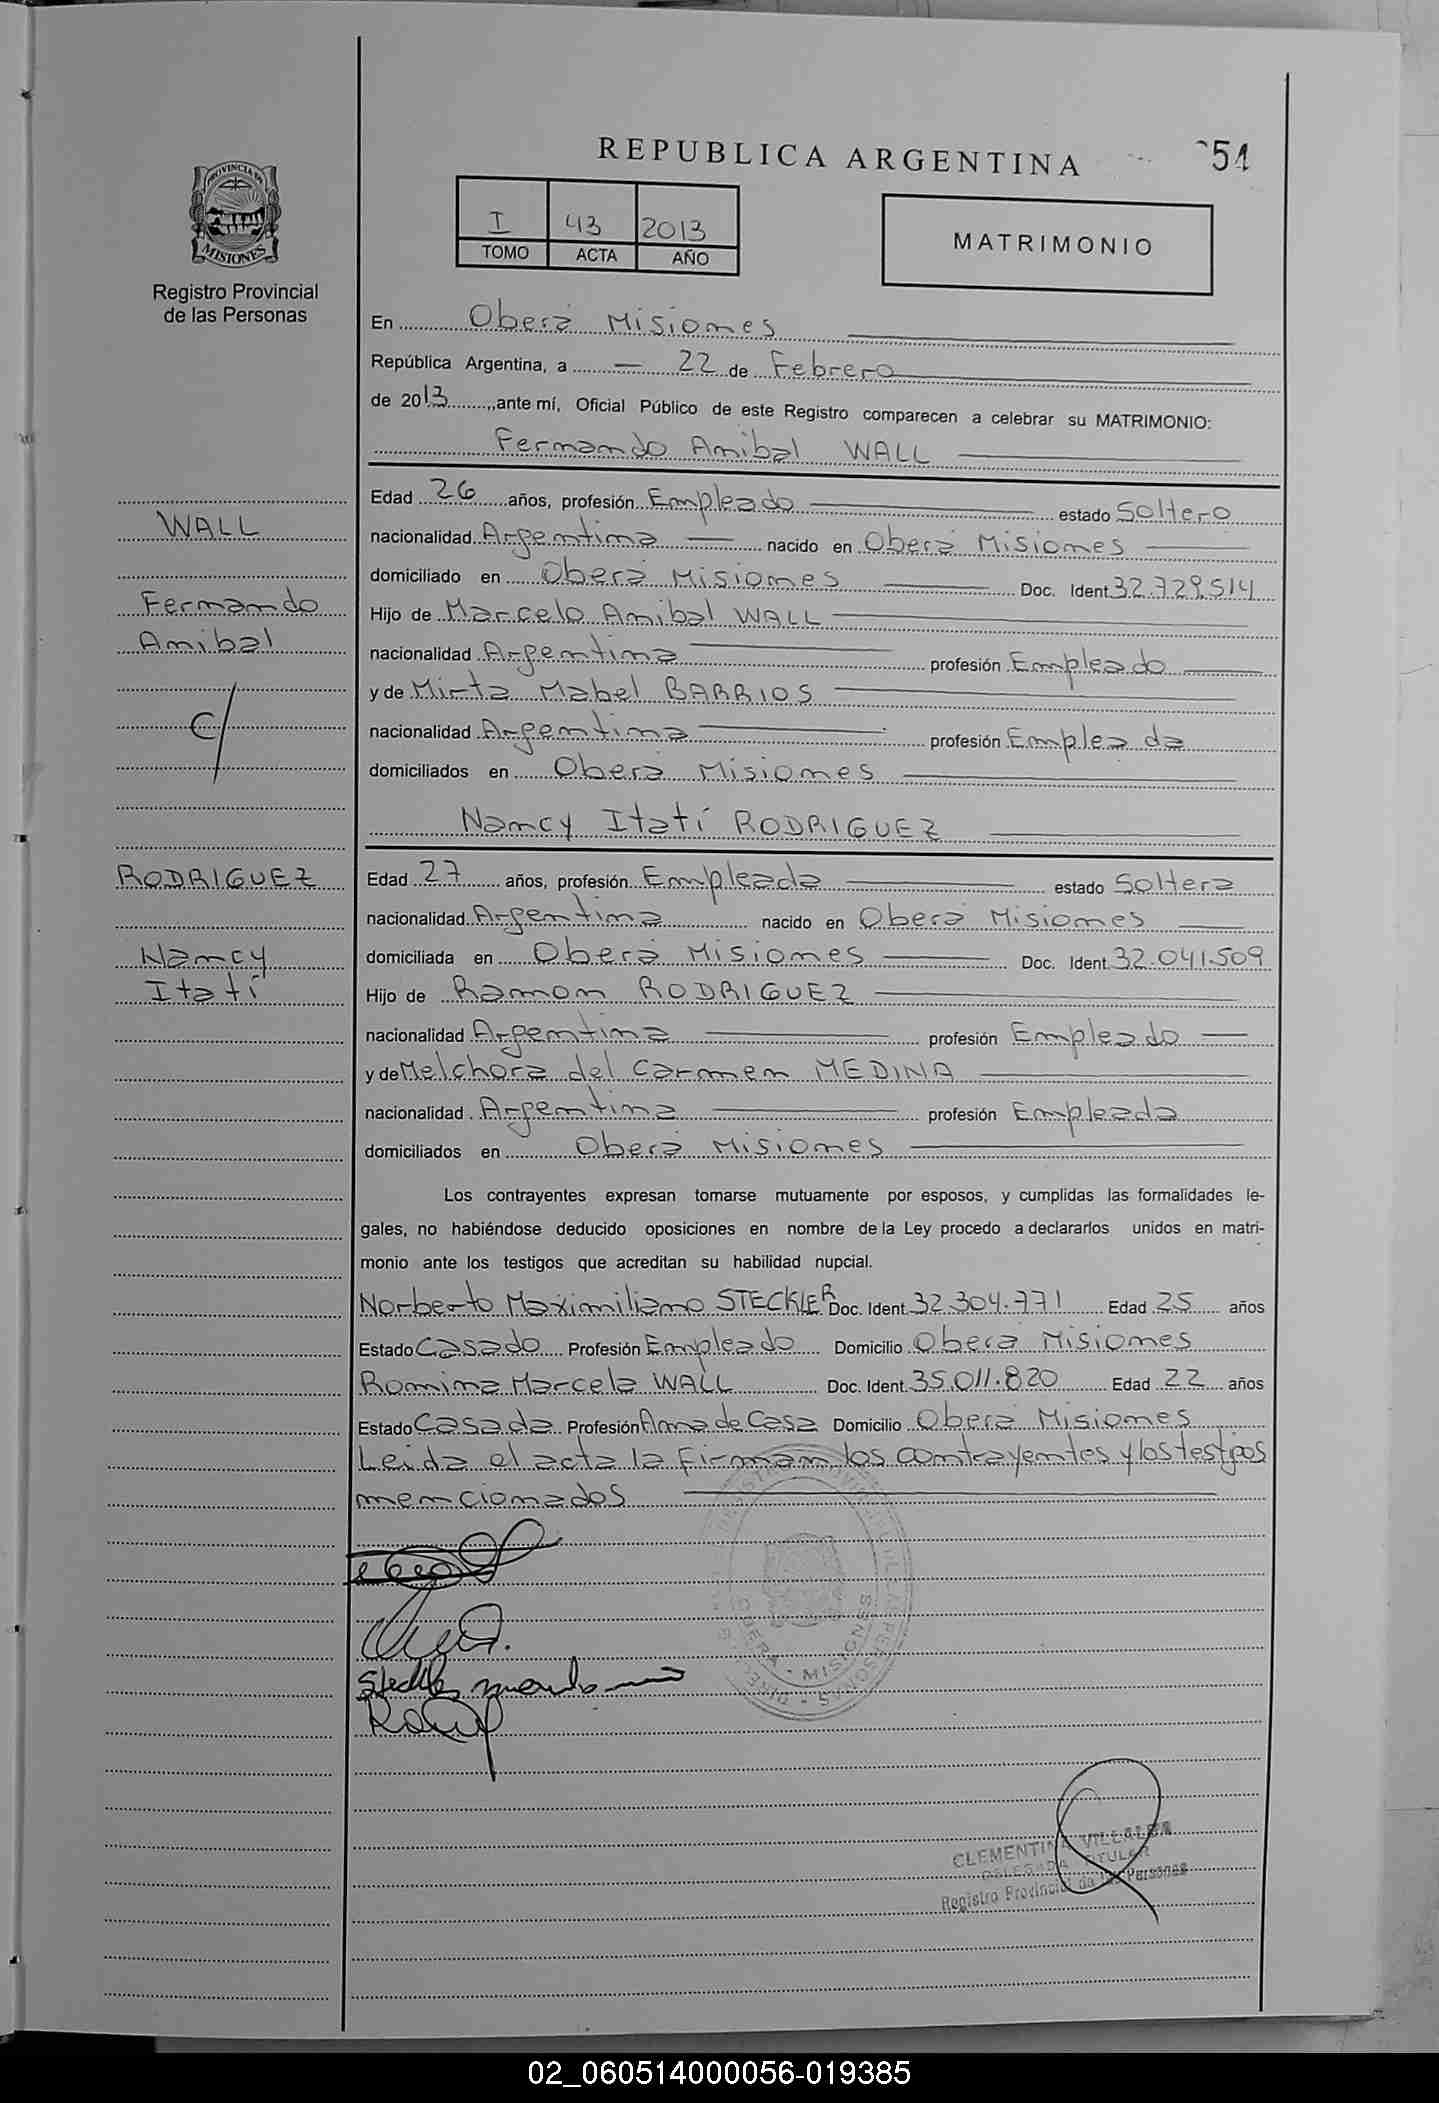 REPUBLICA ARGENTINA
54
PROVINCIA DE
MISIONES
Registro Provincial
de las Personas
I 43 2013
TOMO ACTA AÑO
MATRIMONIO
En Oberá Misiones
República Argentina, a 22 de Febrero
de 2013, ante mí, Oficial Público de este Registro comparecen a celebrar su MATRIMONIO:
Fernando Anibal WALL
Edad 26 años, profesión Empleado estado Soltero
nacionalidad Argentina nacido en Oberá Misiones
domiciliado en Oberá Misiones Doc. Ident. 32.729.514
Hijo de Marcelo Anibal WALL
nacionalidad Argentina profesión Empleado
y de Mirta Mabel BARRIOS
nacionalidad Argentina profesión Empleada
domiciliados en Oberá Misiones
Nancy Itatí RODRIGUEZ
WALL
Fernando
Anibal
C/
RODRIGUEZ
Nancy
Itatí
Edad 27 años, profesión Empleada estado Soltera
nacionalidad Argentina nacido en Oberá Misiones
domiciliada en Oberá Misiones Doc. Ident. 32.041.509
Hijo de Ramon RODRIGUEZ
nacionalidad Argentina profesión Empleado
y de Melchora del Carmen MEDINA
nacionalidad Argentina profesión Empleada
domiciliados en Oberá Misiones
Los contrayentes expresan tomarse mutuamente por esposos, y cumplidas las formalidades le-
gales, no habiéndose deducido oposiciones en nombre de la Ley procedo a declararlos unidos en matri-
monio ante los testigos que acreditan su habilidad nupcial.
Norberto Maximiliano STECKLER Doc. Ident. 32.304.771 Edad 25 años
Estado Casado Profesión Empleado Domicilio Oberá Misiones
Romina Marcela WALL Doc. Ident. 35.011.820 Edad 22 años
Estado Casada Profesión Ama de Casa Domicilio Oberá Misiones
Leida el acta la firman los contrayentes y los testigos
mencionados
OBERA - MISIONES
CLEMENTINA VILLALBA
DELEGADA TITULAR
Registro Provincial de las Personas
02_060514000056-019385